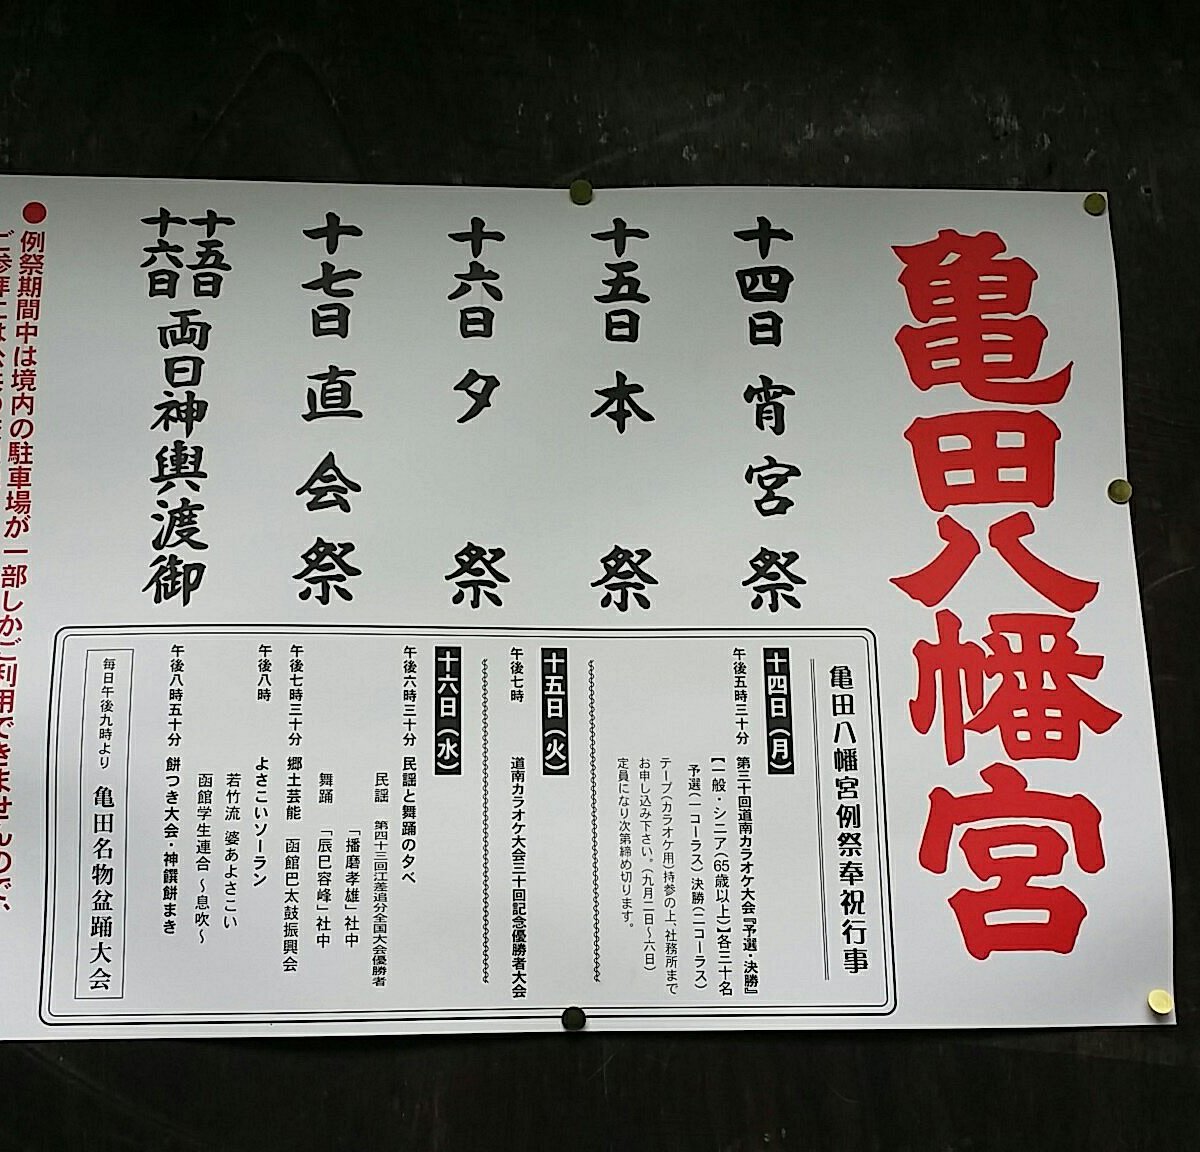 亀田八幡宮
十四日 宵宮祭
十五日 本祭
十六日 夕祭
十七日 直会祭
十五日
十六日
両日神輿渡御
亀田八幡宮例祭奉祝行事
十四日(月)
午後五時三十分 第三十回道南カラオケ大会『予選・決勝』
【一般・シニア(65歳以上)】各三十名
予選(一コーラス)決勝(二コーラス)
テープ(カラオケ用)持参の上、社務所まで
お申し込み下さい。(九月二日〜六日)
定員になり次第締め切ります。
十五日(火)
午後七時 道南カラオケ大会三十回記念優勝者大会
十六日(水)
午後六時三十分 民謡と舞踊の夕べ
民謡 第四十三回江差追分全国大会優勝者
「播磨孝雄」社中
舞踊 「辰巳容峰」社中
午後七時三十分 郷土芸能 函館巴太鼓振興会
午後八時 よさこいソーラン
若竹流 婆あよさこい
函館学生連合 〜息吹〜
午後八時五十分 餅つき大会・神饌餅まき
毎日午後九時より 亀田名物盆踊大会
●例祭期間中は境内の駐車場が一部しかご利用できませんので、
ご参拝には公共の